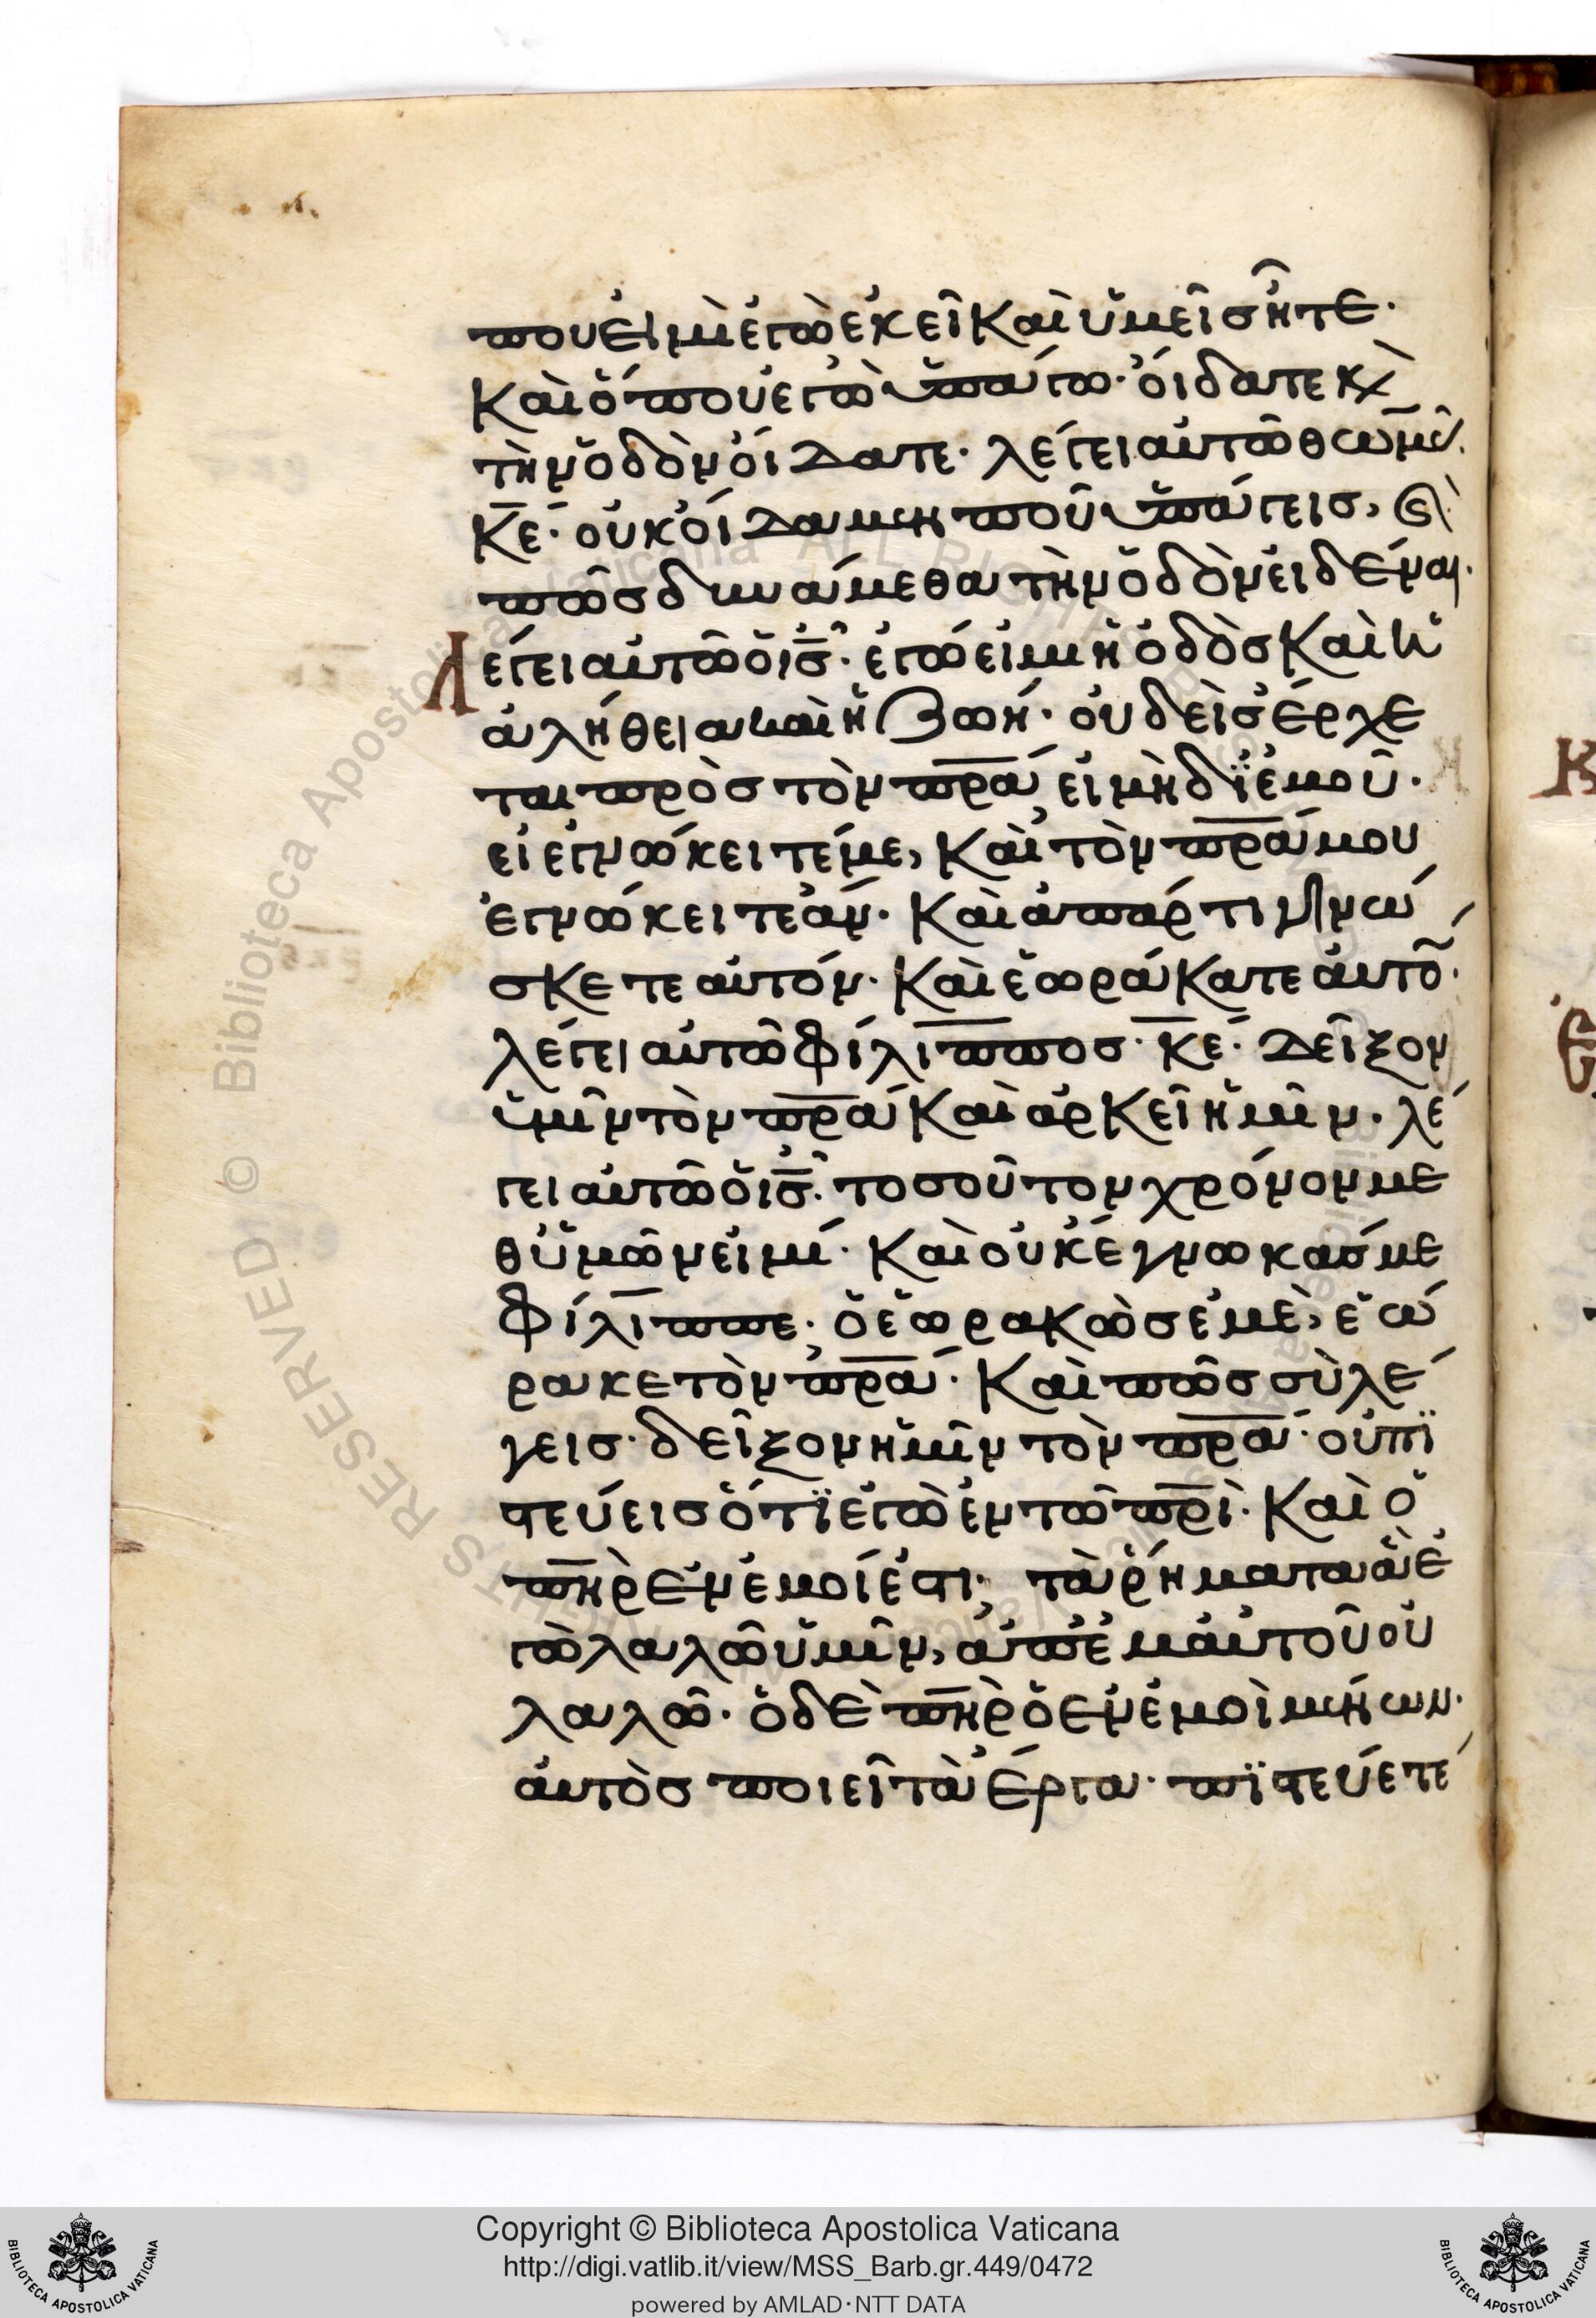 που εἰμὶ ἐγὼ ἐκεῖ καὶ ὑμεῖς ἦτε·
καὶ ὅπου ἐγὼ ὑπάγω· οἴδατε κ(αὶ)
τὴν ὁδὸν οἴδατε· λέγει αὐτῶ θωμᾶς·
κ̅ε̅· οὐκ οἴδαμεν ποῦ ὑπάγεις, (καὶ)
πῶς δυνάμεθα τὴν ὁδὸν εἰδέναι·
Λέγει αὐτῶ ὁ ι̅ς̅· ἐγώ εἰμι ἡ ὁδὸς καὶ ἡ
ἀλήθεια καὶ ἡ ζωή· οὐδεὶς ἔρχε
ται πρὸς τὸν π̅ρ̅α̅ εἰ μὴ δϊ ἐμοῦ·
εἰ ἐγνώκειτέ με, καὶ τὸν π̅ρ̅α̅ μου
ἐγνώκειτε ἄν· καὶ ἀπάρτι γινώ
σκετε αὐτόν· καὶ ἑωράκατε αὐτό̅·
λέγει αὐτῶ φίλιππος· κ̅ε̅· δεῖξον
ὑμῖν τὸν π̅ρ̅α̅ καὶ ἀρκεῖ ἡμῖν· λέ
γει αὐτῶ ὁ ι̅ς̅· τοσοῦτον χρόνον με
θ' ὑμῶν εἰμί· καὶ οὐκ ἔγνωκάς με
φίλιππε· ὁ ἑωρακὼς ἐμὲ, ἑώ
ρακε τὸν π̅ρ̅α̅· καὶ πῶς σὺ λέ
γεις· δεῖξον ἡμῖν τὸν π̅ρ̅α̅· οὐ πϊ
στεύεις ὅτϊ ἐγὼ ἐν τῶ π̅ρ̅ὶ̅· καὶ ὁ
π̅η̅ρ̅ ἐν ἐμοί ἐστι; τὰ ῥήματα ἃ ἐ
γὼ λαλῶ ὑμῖν, ἀπ' ἐμαυτοῦ οὐ
λαλῶ· ὁ δὲ π̅η̅ρ̅ ὁ ἐν ἐμοὶ μένων·
αὐτὸς ποιεῖ τὰ ἔργα· πϊστεύετέ
Copyright © Biblioteca Apostolica Vaticana
http://digi.vatlib.it/view/MSS_Barb.gr.449/0472
powered by AMLAD·NTT DATA